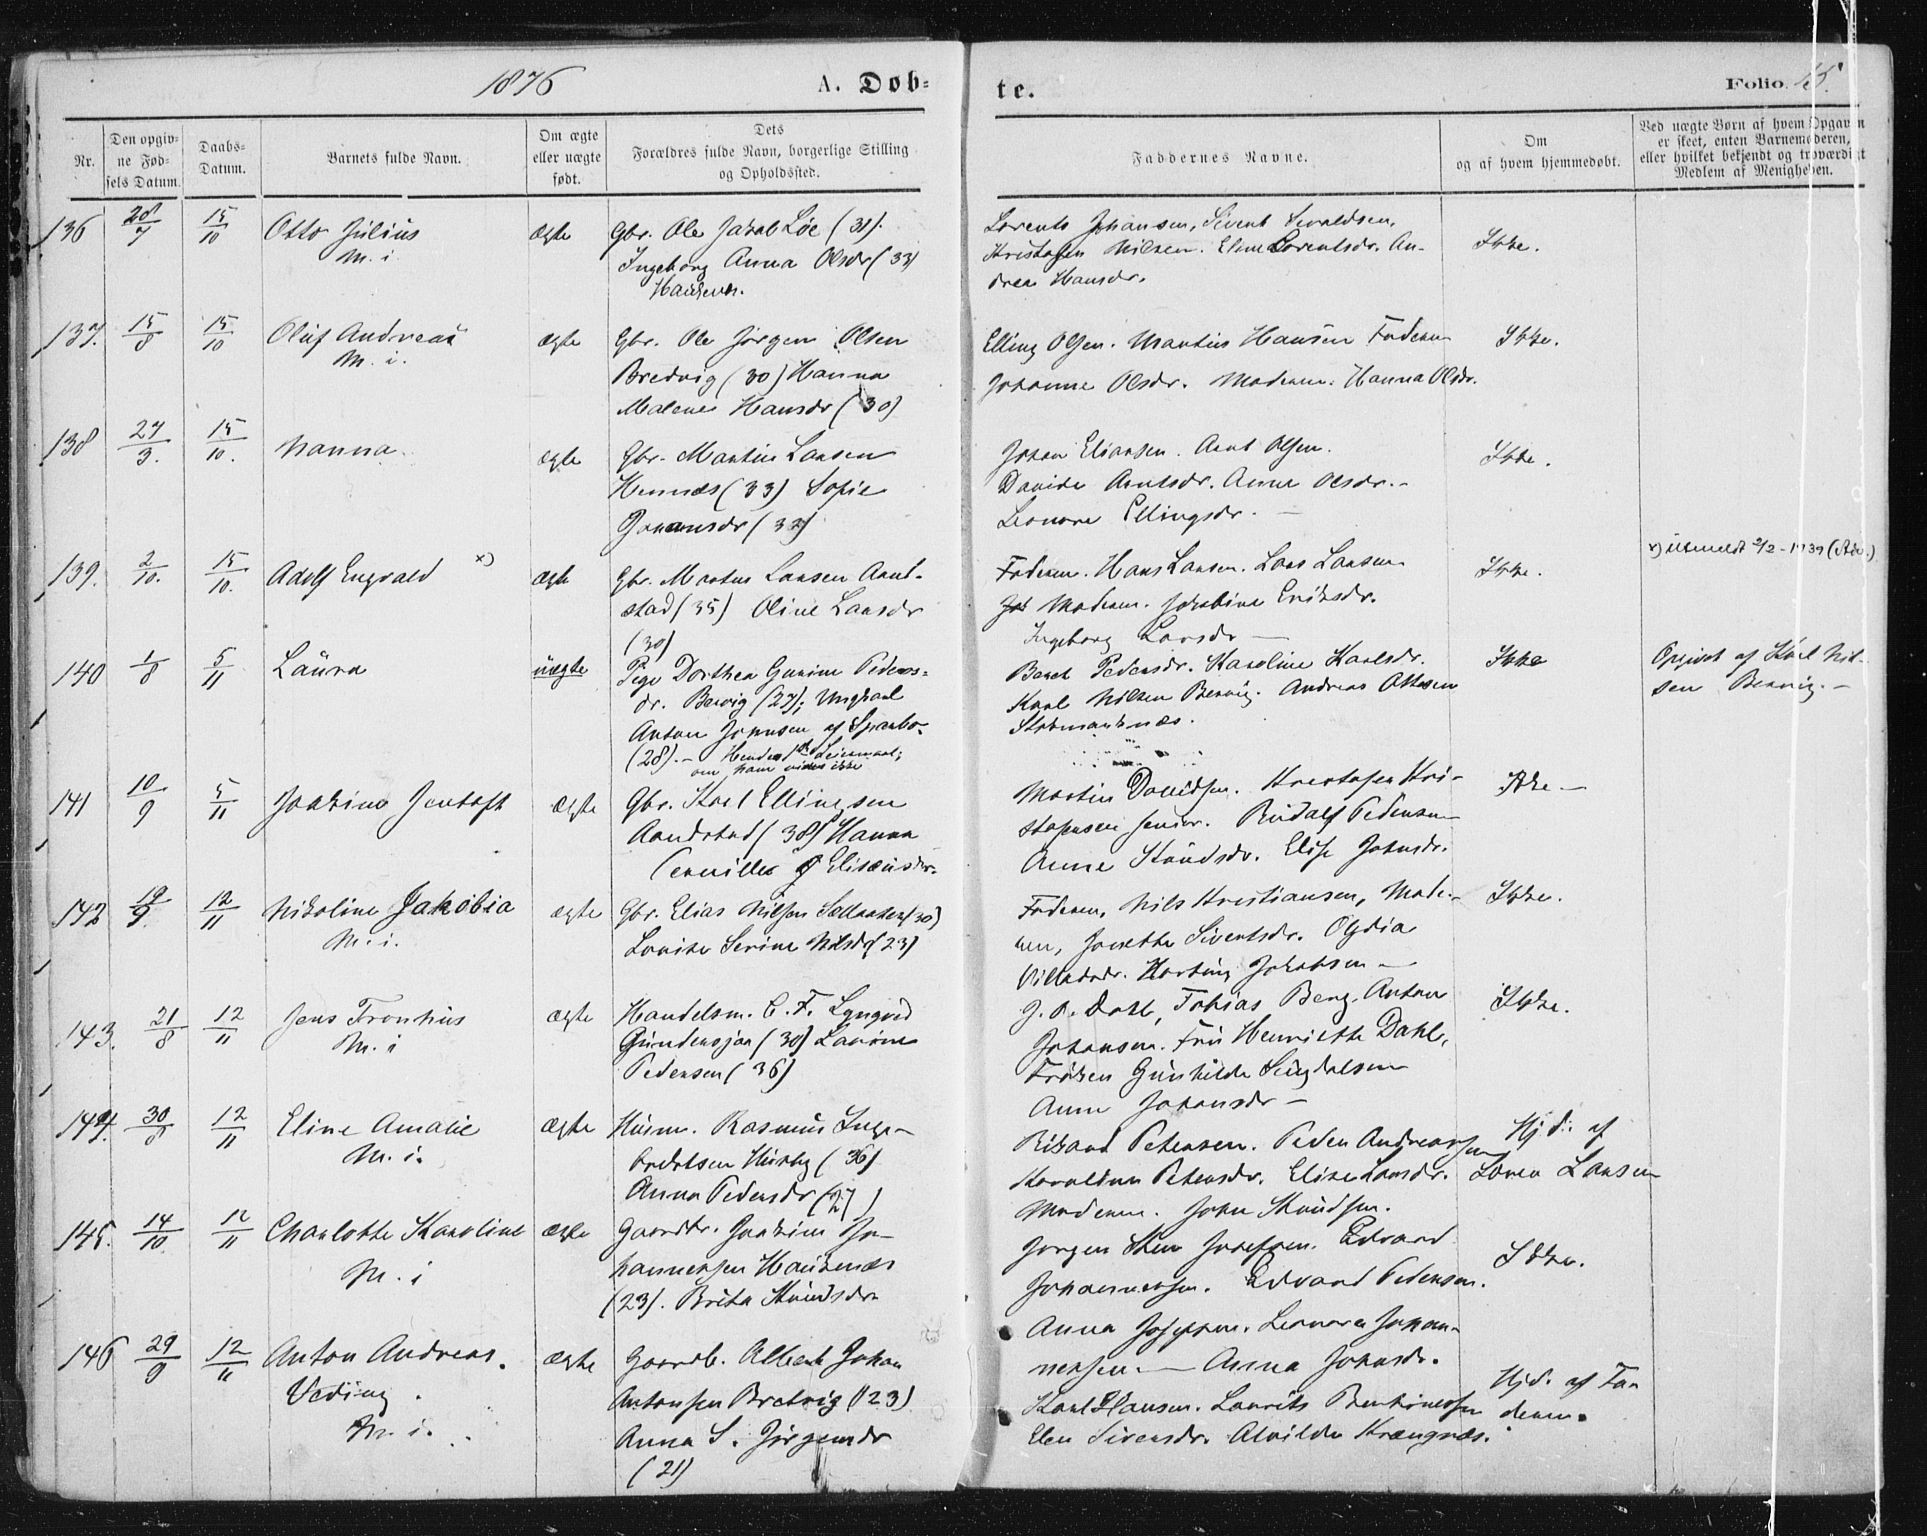 1876
A. Døb=
te.
Folio. 15.
Nr.
Den opgiv=
ne Fød=
sels Datum.
Daabs=
Datum.
Barnets fulde Navn.
Om ægte
eller uægte
født.
Dets
Forældres fulde Navn, borgerlige Stilling
og Opholdssted.
Faddernes Navne.
Om
og af hvem hjemmedøbt.
Ved uægte Børn af hvem Opgaven
er skeet, enten Barnemoderen,
eller hvilket bekjendt og troværdigt
Medlem af Menigheden.
136 28/7 15/10 Otto Julius ægte Gbr. Ole Jakob Löe (31).
M. i
Ingeborg Anna Olsdr (33)
Lorents Johansen, Sivert Sivaldsen,
Kristofer Nilsen. Eline Lorentsdr. An-
drea Hansdr.
Ikke.
137. 15/8 15/10 Oluf Andreas ægte Gbr. Ole Jørgen Olsen
M. i.
Bredvig (30) Hanna
Malene Hansdr (30)
Elling Olsen. Martin Hansen Faderen
Johanne Olsdr. Moderen. Hanna Olsdr.
Ikke.
138 27/3. 15/10. Nanna ægte Gbr. Martin Larsen
Hennes (33) Sofie
Johansdr (33)
Johan Eliasen. Arnt Olsen.
Davida Arntsdr. Anna Olsdr. -
Leonore Ellingsdr. -
Ikke.
139. 2/10. 15/10. Adolf Engvald x) ægte Gbr. Martin Larsen Aand-
stad (35) Oline Larsdr
(30)
Faderen. Hans Larsen. Lars Larsen
Moderen. Jakobine Eriksdr.
Ingeborg Larsdr -
Ikke.
x) utmeldt 2/2 - 1939 (Adv.)
140 1/8 5/11 Laura uægte Pige Dorthea Gurine Peders-
dr. Bervig (27); Ungkarl
Anton Johnsen af
(28). - Hendes 1ste Leiermaal;
om hans vides ikke
Beret Pedersdr. Karoline Karlsdr.
Karl Nilsen Bervig. Andreas Ottesen
Stokmarknæs.
Ikke
Opgivet af Karl Nil-
sen Bervig. -
141 10/9 5/11 Joakim Jentoft ægte Gbr. Karl Ellingsen
Aandstad (38) Hanna
Martin Davidsen. Kristofer Kri-
stofersen senior. Rudolf Pedersen
Anne Knudsdr. Elise Johnsdr.
Ikke -
142 19/9. 12/11 Nikoline Jakobia ægte Gbr. Elias Nilsen (30)
M. i.
Lovise Serine Nilsdr (23)
Faderen, Nils Kristiansen, Mode-
ren, Jonetta Sivertsdr. Olydia
Villadsdr. Hartvig Jakobsen -
Ikke.
143. 21/8 12/11 Jens Tronhus ægte Handelsm. C. F. Lyngved
M. i
(30)
Pedersen (36)
J. A. Dahl, Tobias Berg. Anton
Johansen. Fru Henriette Dahl,
Frøken Gunhilda
Anne Johansdr -
Ikke.
144. 30/8 12/11 Eline Amalie ægte Husm. Rasmus Inge-
M. i.
brektsen Husby (36)
Anna Pedersdr (27)
Rikard Petersen. Peder Andreassen
Petersdr. Elise Larsdr.
Moderen. John Knudsen.
Hjd. af
Søren Larsen
145. 14/10. 12/11 Charlotte Karoline ægte Gaardbr. Joakim Jo-
M. i
hannessen Haukenæs
(23). Brita Knudsdr
Jørgen Josefsen. Edvard
Johannessen. Edvard Pedersen.
Anna Josefsen. Leonora Johan-
nessen. - Anna Johnsdr.
Ikke.
146 29/9 12/11 Anton Andreas ægte Gaardb. Albert Johan
Veding.
M. i.
Antonsen Bretvig (23)
Anna S. Jørgensdr
(21)
Karl Hansen. Laurits
Elen Siversdr. Alvilda Krængnæs.
Hjd. af Fa-
deren.